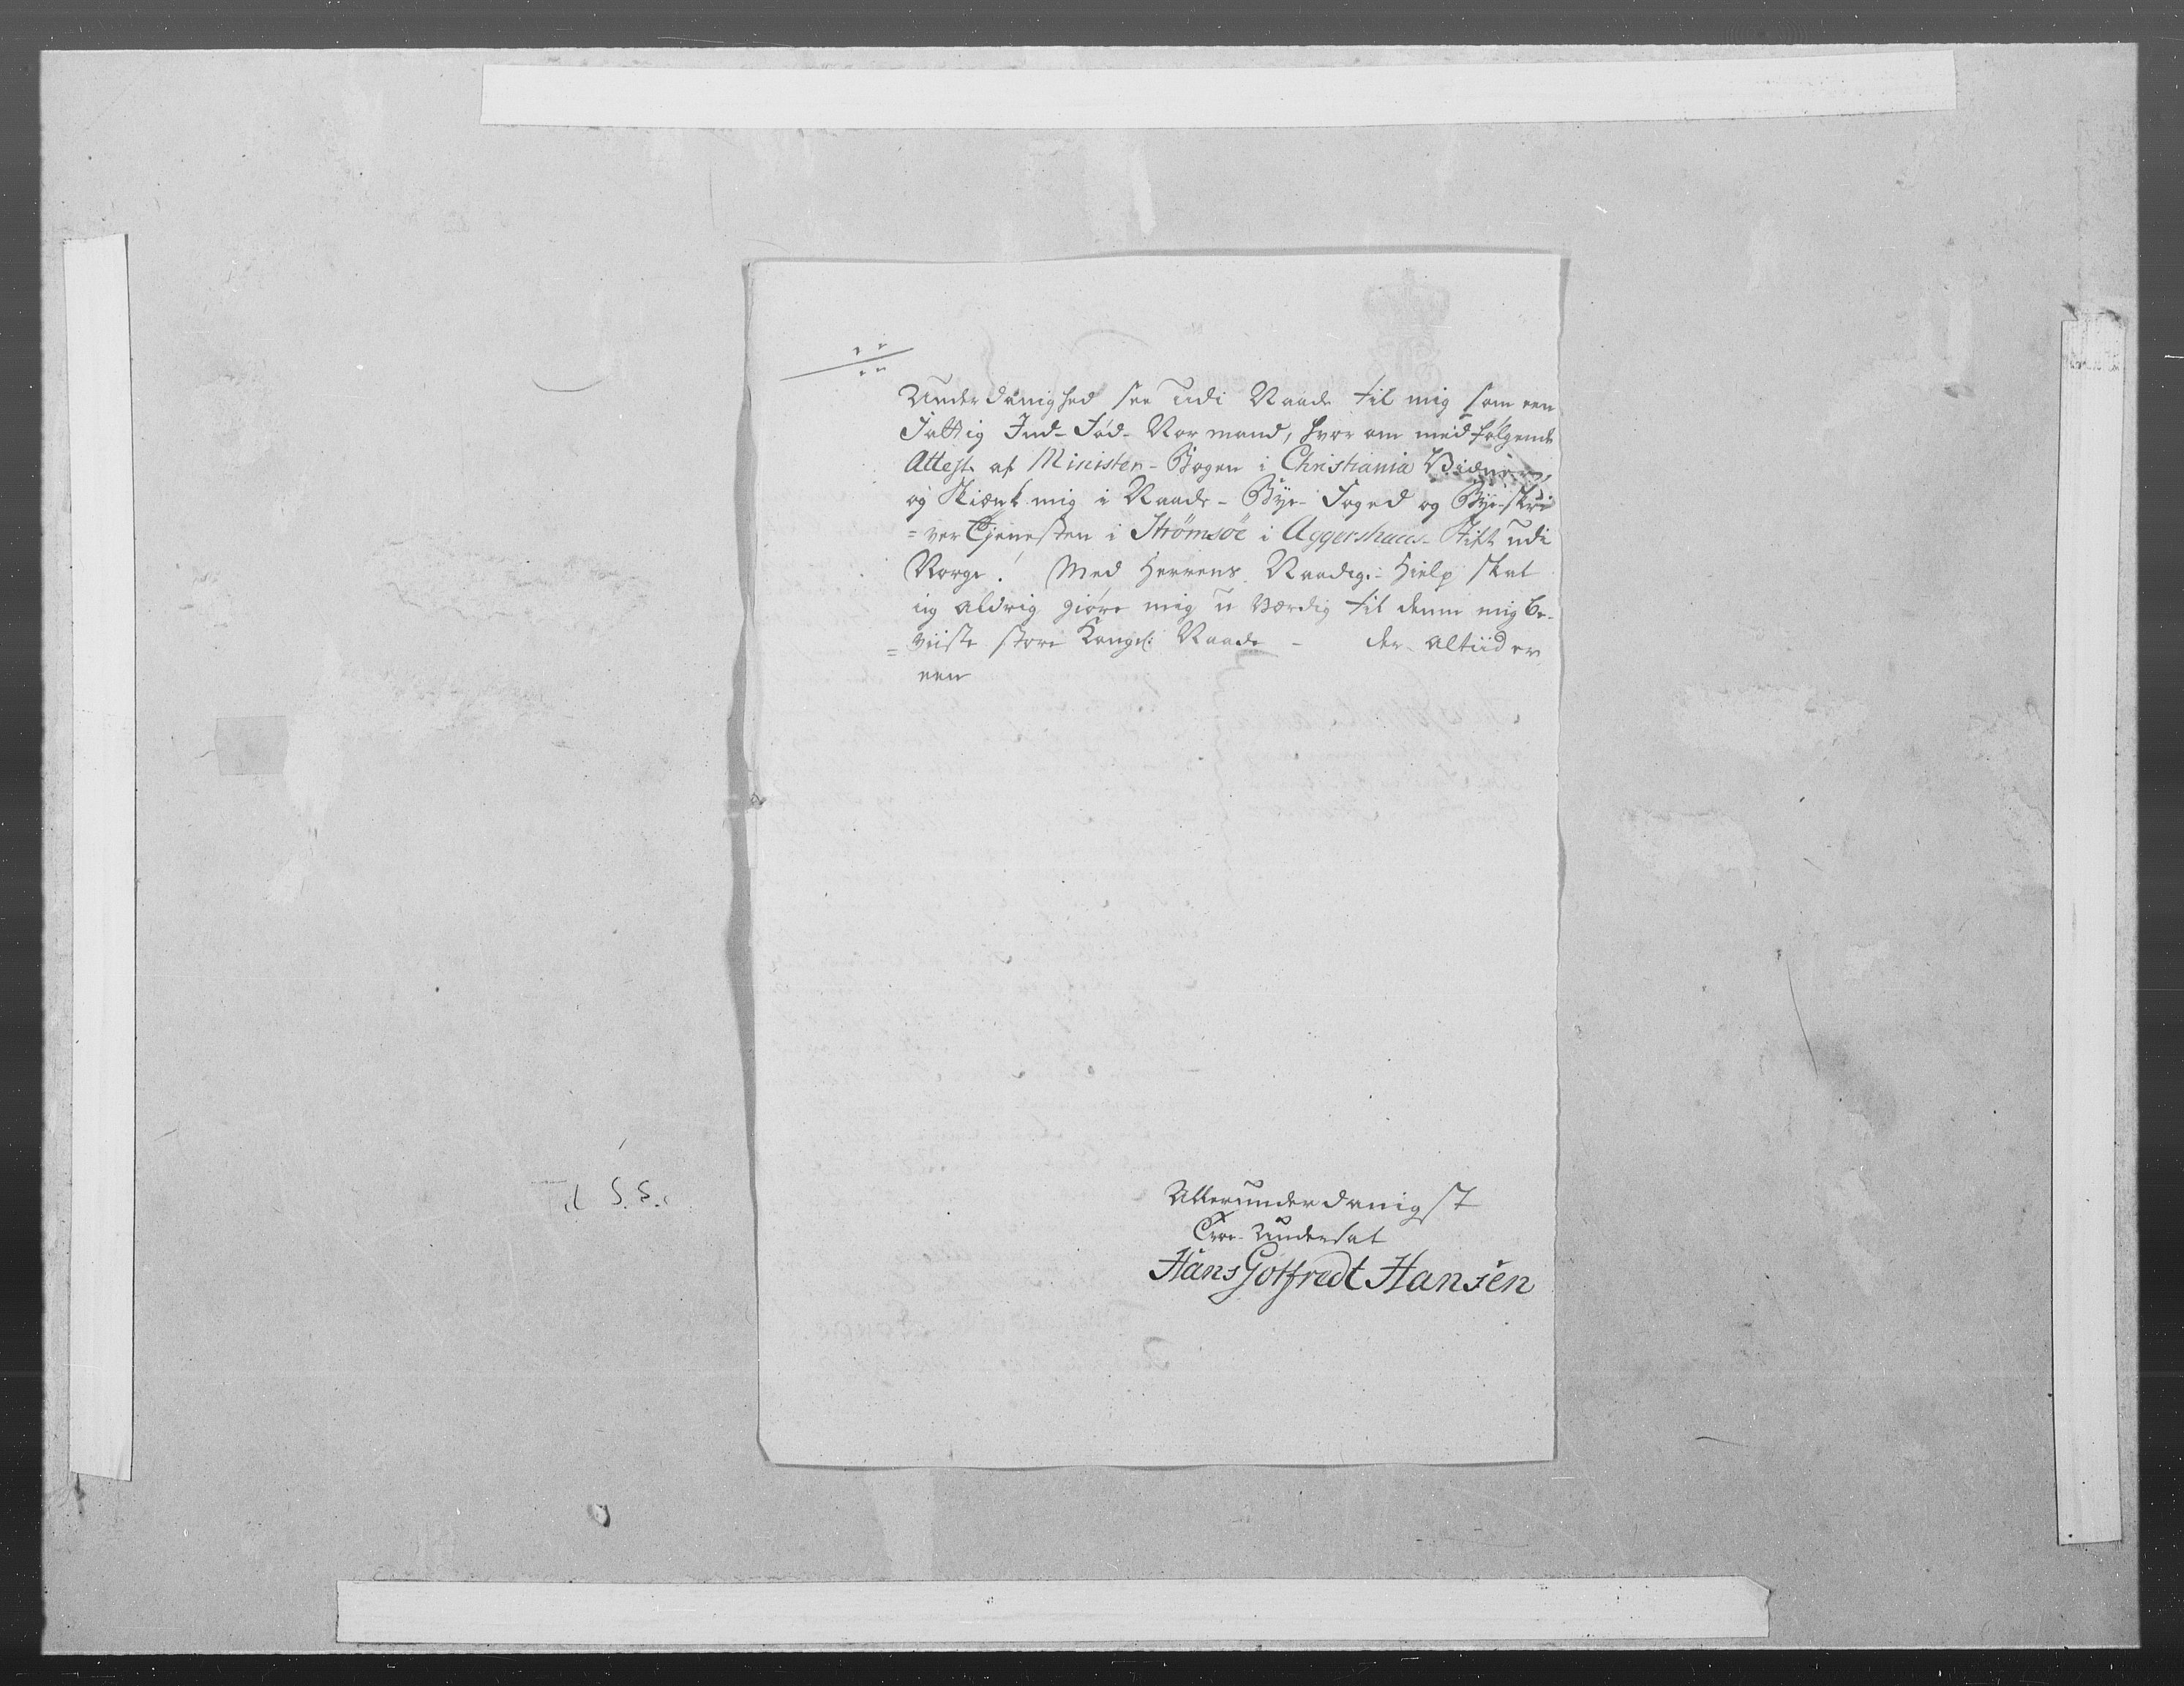 Underdanighed see udi Naade til mig som een
Fattig Ind-Fød-Normand, hvor om medfølgende
Attest af Minister-Bogen i Christiania Vidner,
og Skienk mig i Naade- Bye-Foged og Bye-skri
=ver Tjenesten i Strømsøe i Aggershuus-Stift udi
Norge! Med Herrens Naadige Hielp skal
ieg aldrig giøre mig u værdig til denne mig be-
=viiste store Kongel: Naade - der altiid er
een
Allerunderdanigst
Troe Undersaat
Hans Gotfredt Hansen